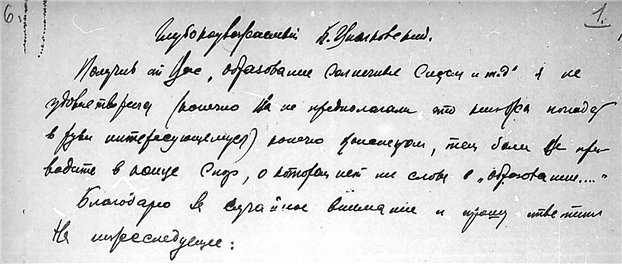 6. 1.
Глубокоуважаемый К. Циолковский.
Получив от Вас „Образование Солнечных Систем и т.д" я не
удовлетворен (конечно Вы не предполагали что книжка попадет
в руки интересующемуся) конечно, тем более Вы при
водите в конце, о которой нет ни слова в „образовании...."
Благодарю за случайное внимание и прошу ответить
На нижеследующее: